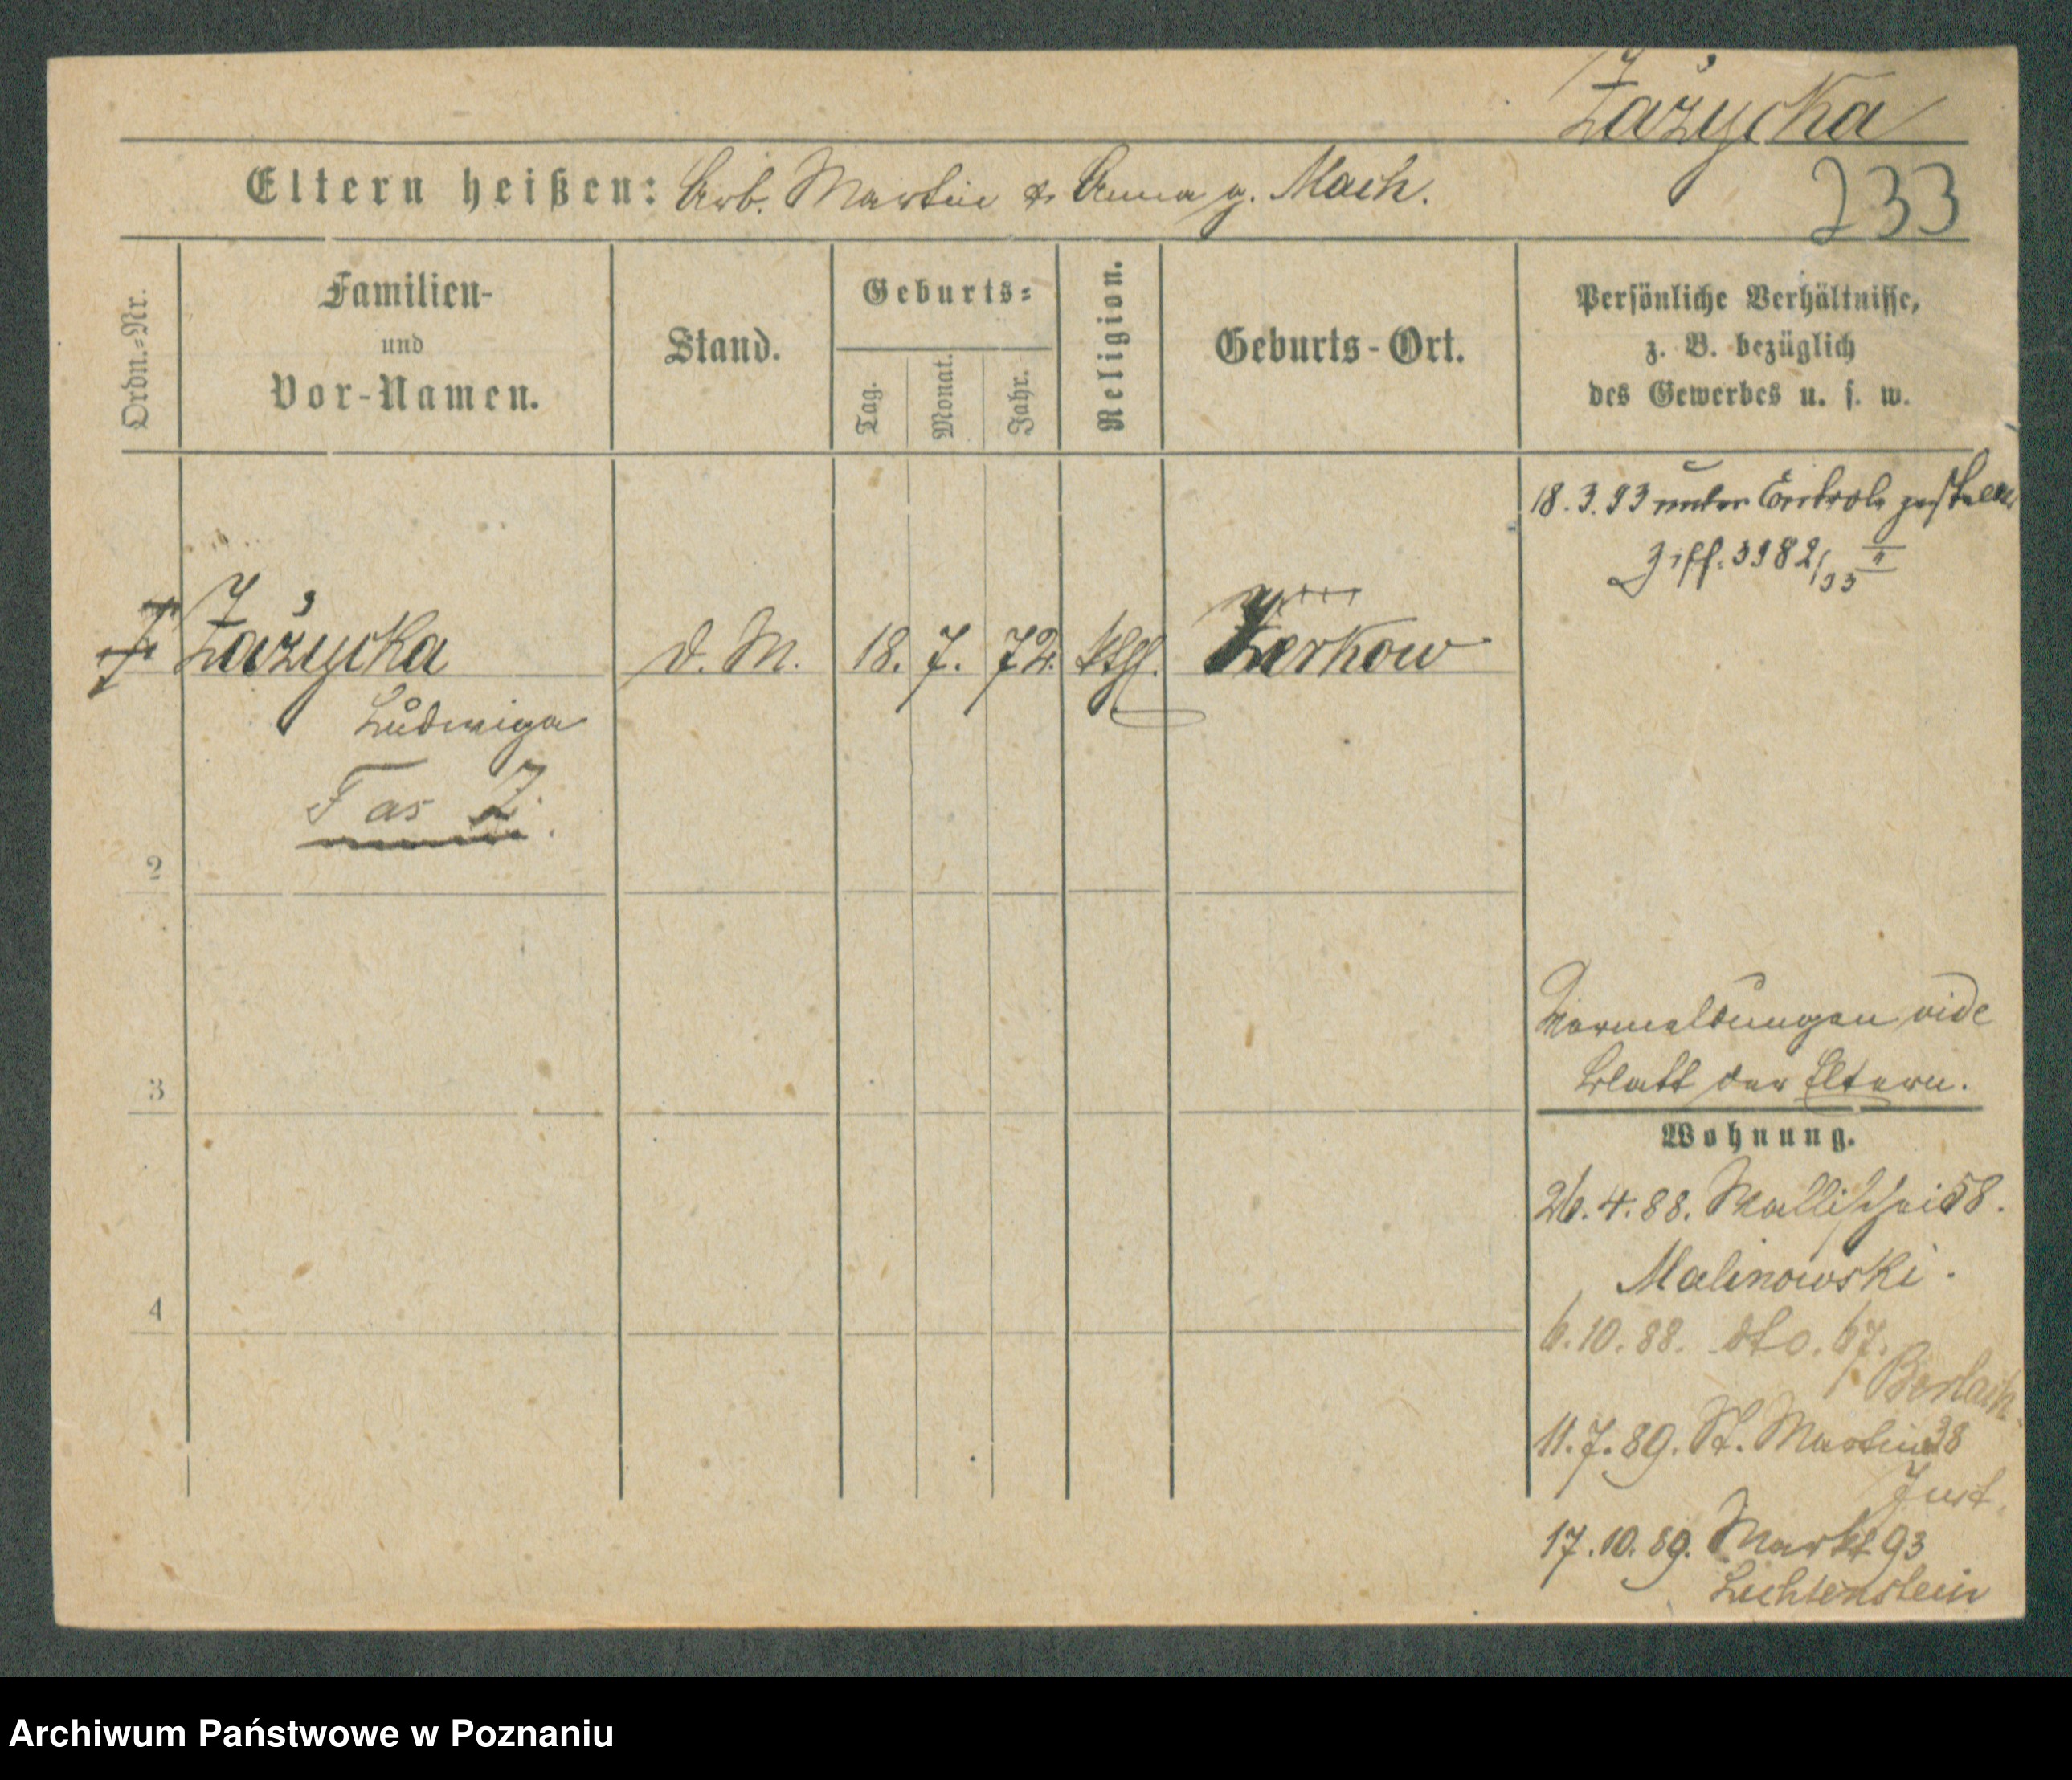 Zażycka
Eltern heißen: Arb. Martin & Anna g. Mach.
233
Ordn.=Nr.
Familien-
und
Vor-Namen.
Stand.
Geburts=
Tag.
Monat.
Jahr.
Religion.
Geburts-Ort.
Persönliche Verhältnisse,
z. B. bezüglich
des Gewerbes u. s. w.
18. 3. 93 unter Controle gestellt
Ziff. 3982/93 II
Zażycka d. M. 18. 7. 72. kth. Zerkow
Ludwiga
Tas Z.
2
3
4
Vormeldungen vide
Blatt der Eltern.
Wohnung.
26. 4. 88. Wallischei 58.
Malinowski.
6. 10. 88. dto. 67.
11. 7. 89. St. Martin 38
Just.
17. 10. 89. Markt 93
Lichtenstein
Archiwum Państwowe w Poznaniu